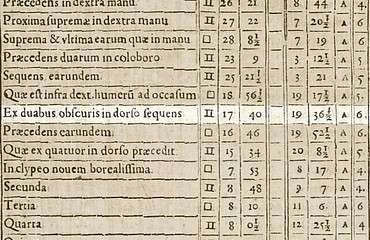 Præcedens in dextra manu ♊ 26 21 8 44 A 4.
Proxima supremæ in dextra manu ♊ 27 22 7 20½ A 6
Suprema & vltima earum quæ in manu □ 28 8½ 7 19 A 6
Præcedens duarum in coloboro ♊ 23 9 3 12½ A 5
Sequens earundem. ♊ 25 21½ 3 21 A 5
Quæ est infra dext. humerũ ad occasum □ 18 56½ 19 17½ A 5.
Ex duabus obscuris in dorso sequens ♊ 17 40 19 36½ A 6.
Præcedens earundem. □ 16 46 19 52½ A 6.
Quæ ex quatuor in dorso præcedit ♊ 15 34 20 8½ A 5
In clypeo nouem borealissima. □ 7 53 8 17 A 4.
Secunda ♊ 8 48 9 7 A 4.
Tertia □ 8 10 11 6 A 6
Quarta ♊ 8 0½ 12 25½ A 4